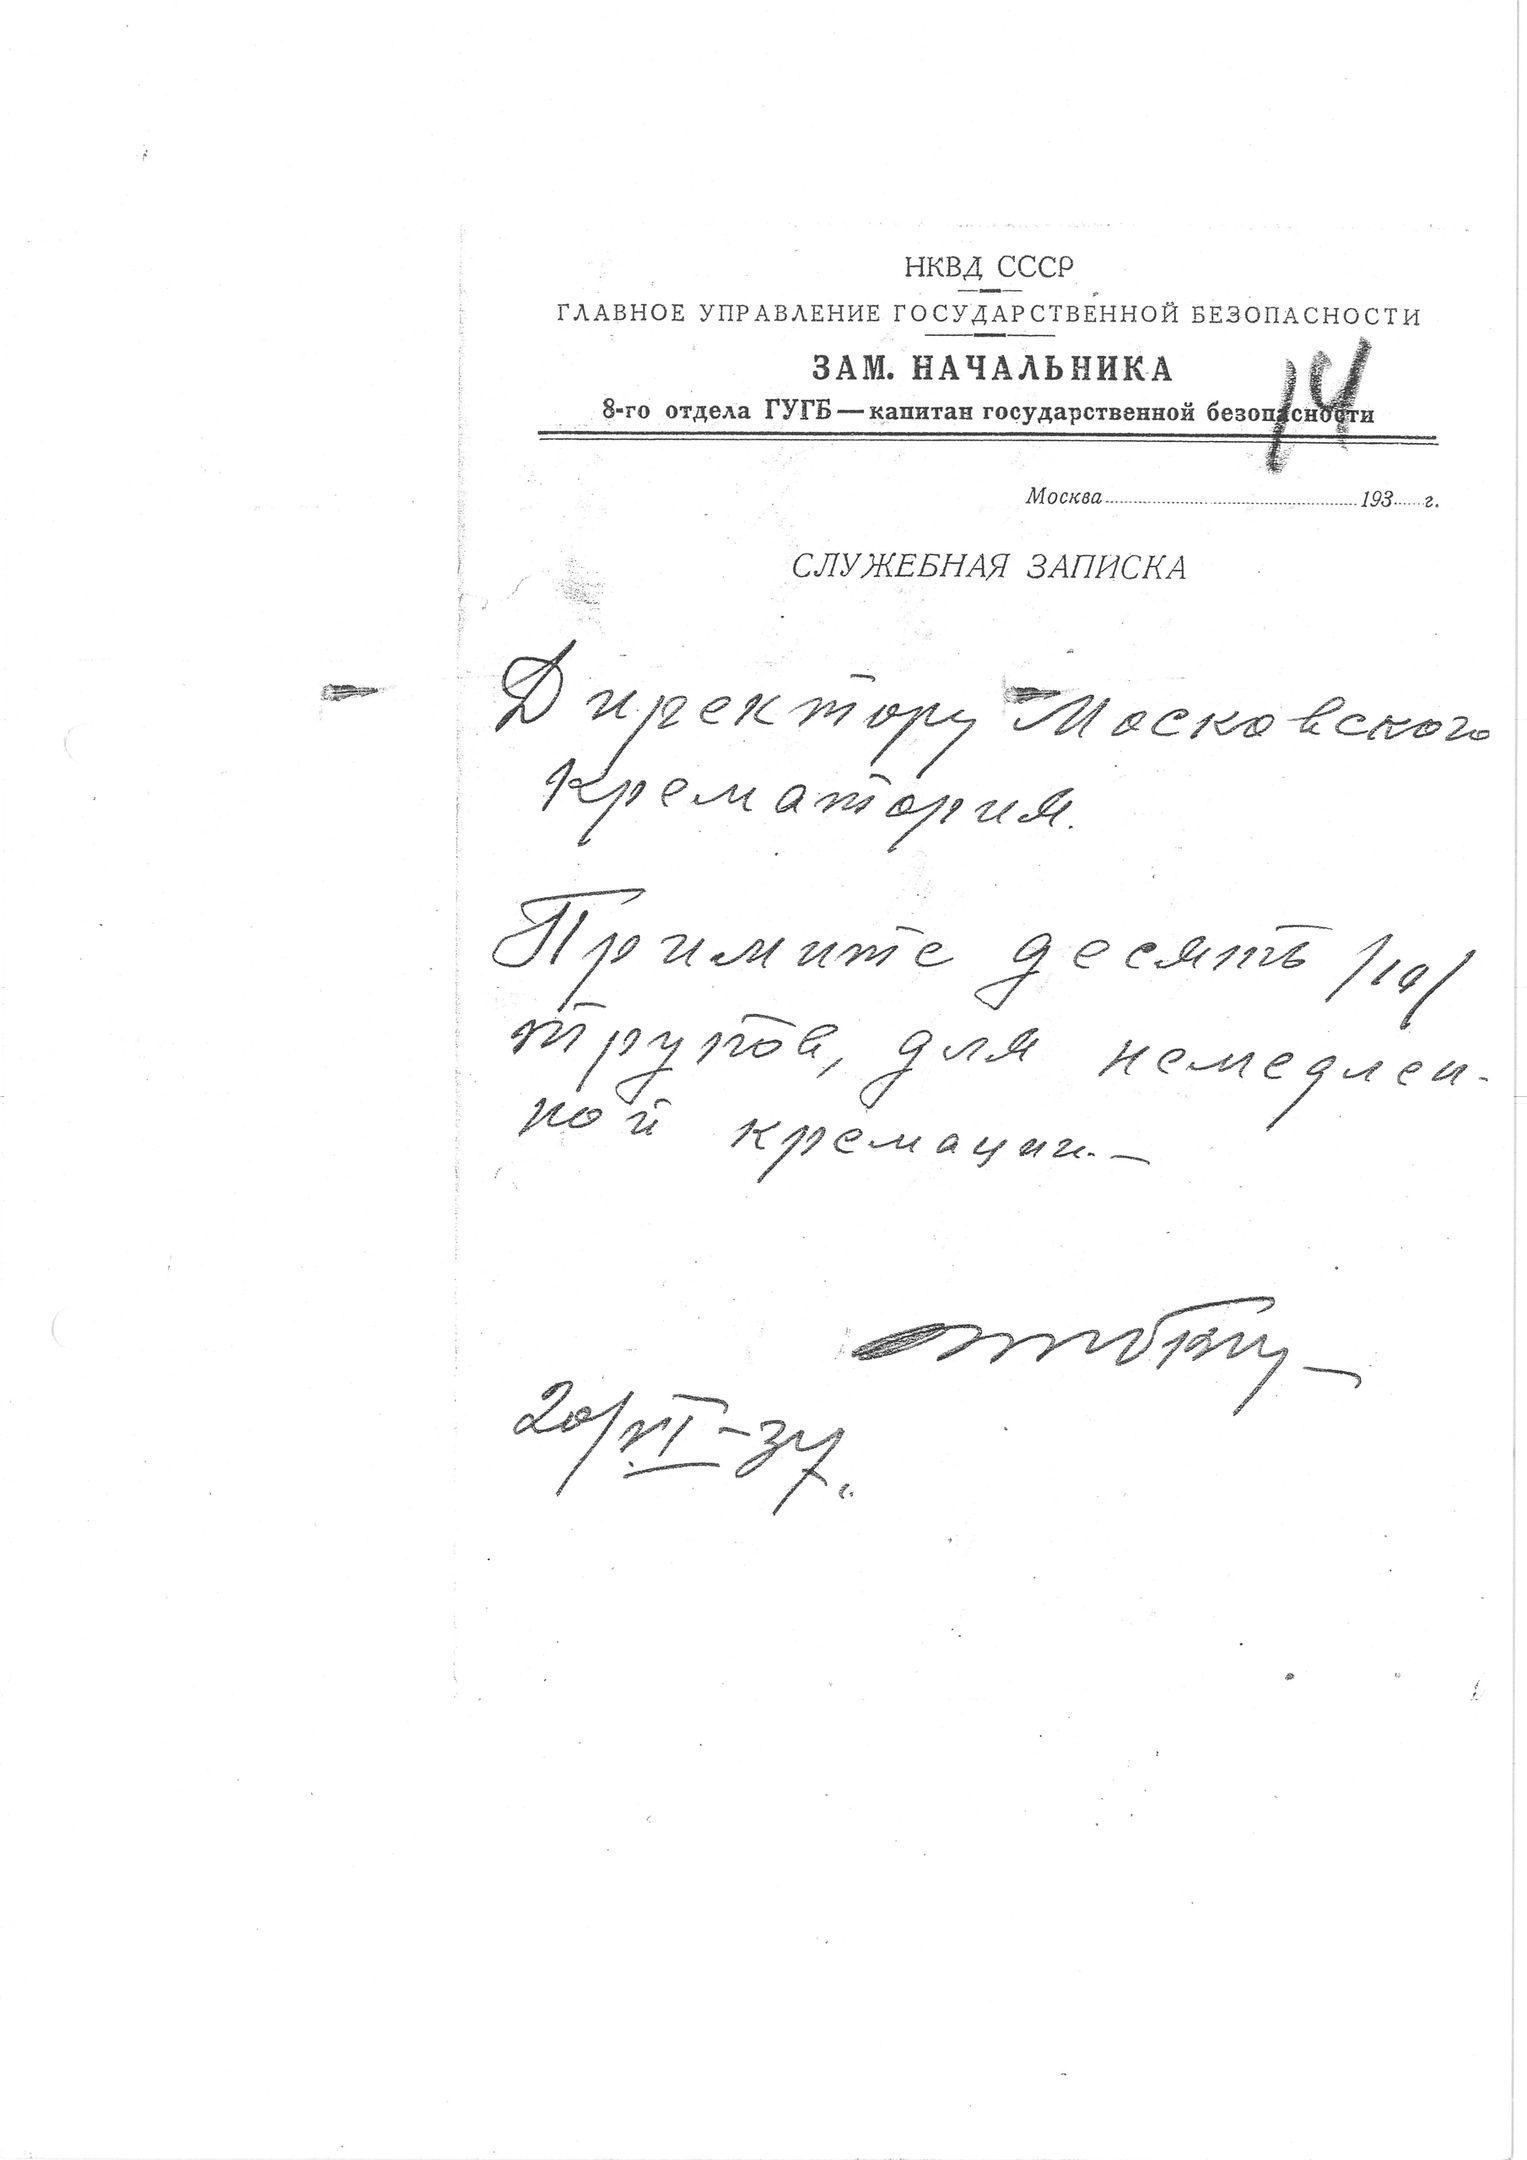 НКВД СССР
ГЛАВНОЕ УПРАВЛЕНИЕ ГОСУДАРСТВЕННОЙ БЕЗОПАСНОСТИ
ЗАМ. НАЧАЛЬНИКА
8-го отдела ГУГБ — капитан государственной безопасности
14
Москва 193 г.
СЛУЖЕБНАЯ ЗАПИСКА
Директору Московского
крематория.
Примите десять /10/
трупов, для немедлен-
ной кремации. —
20/VI-37.